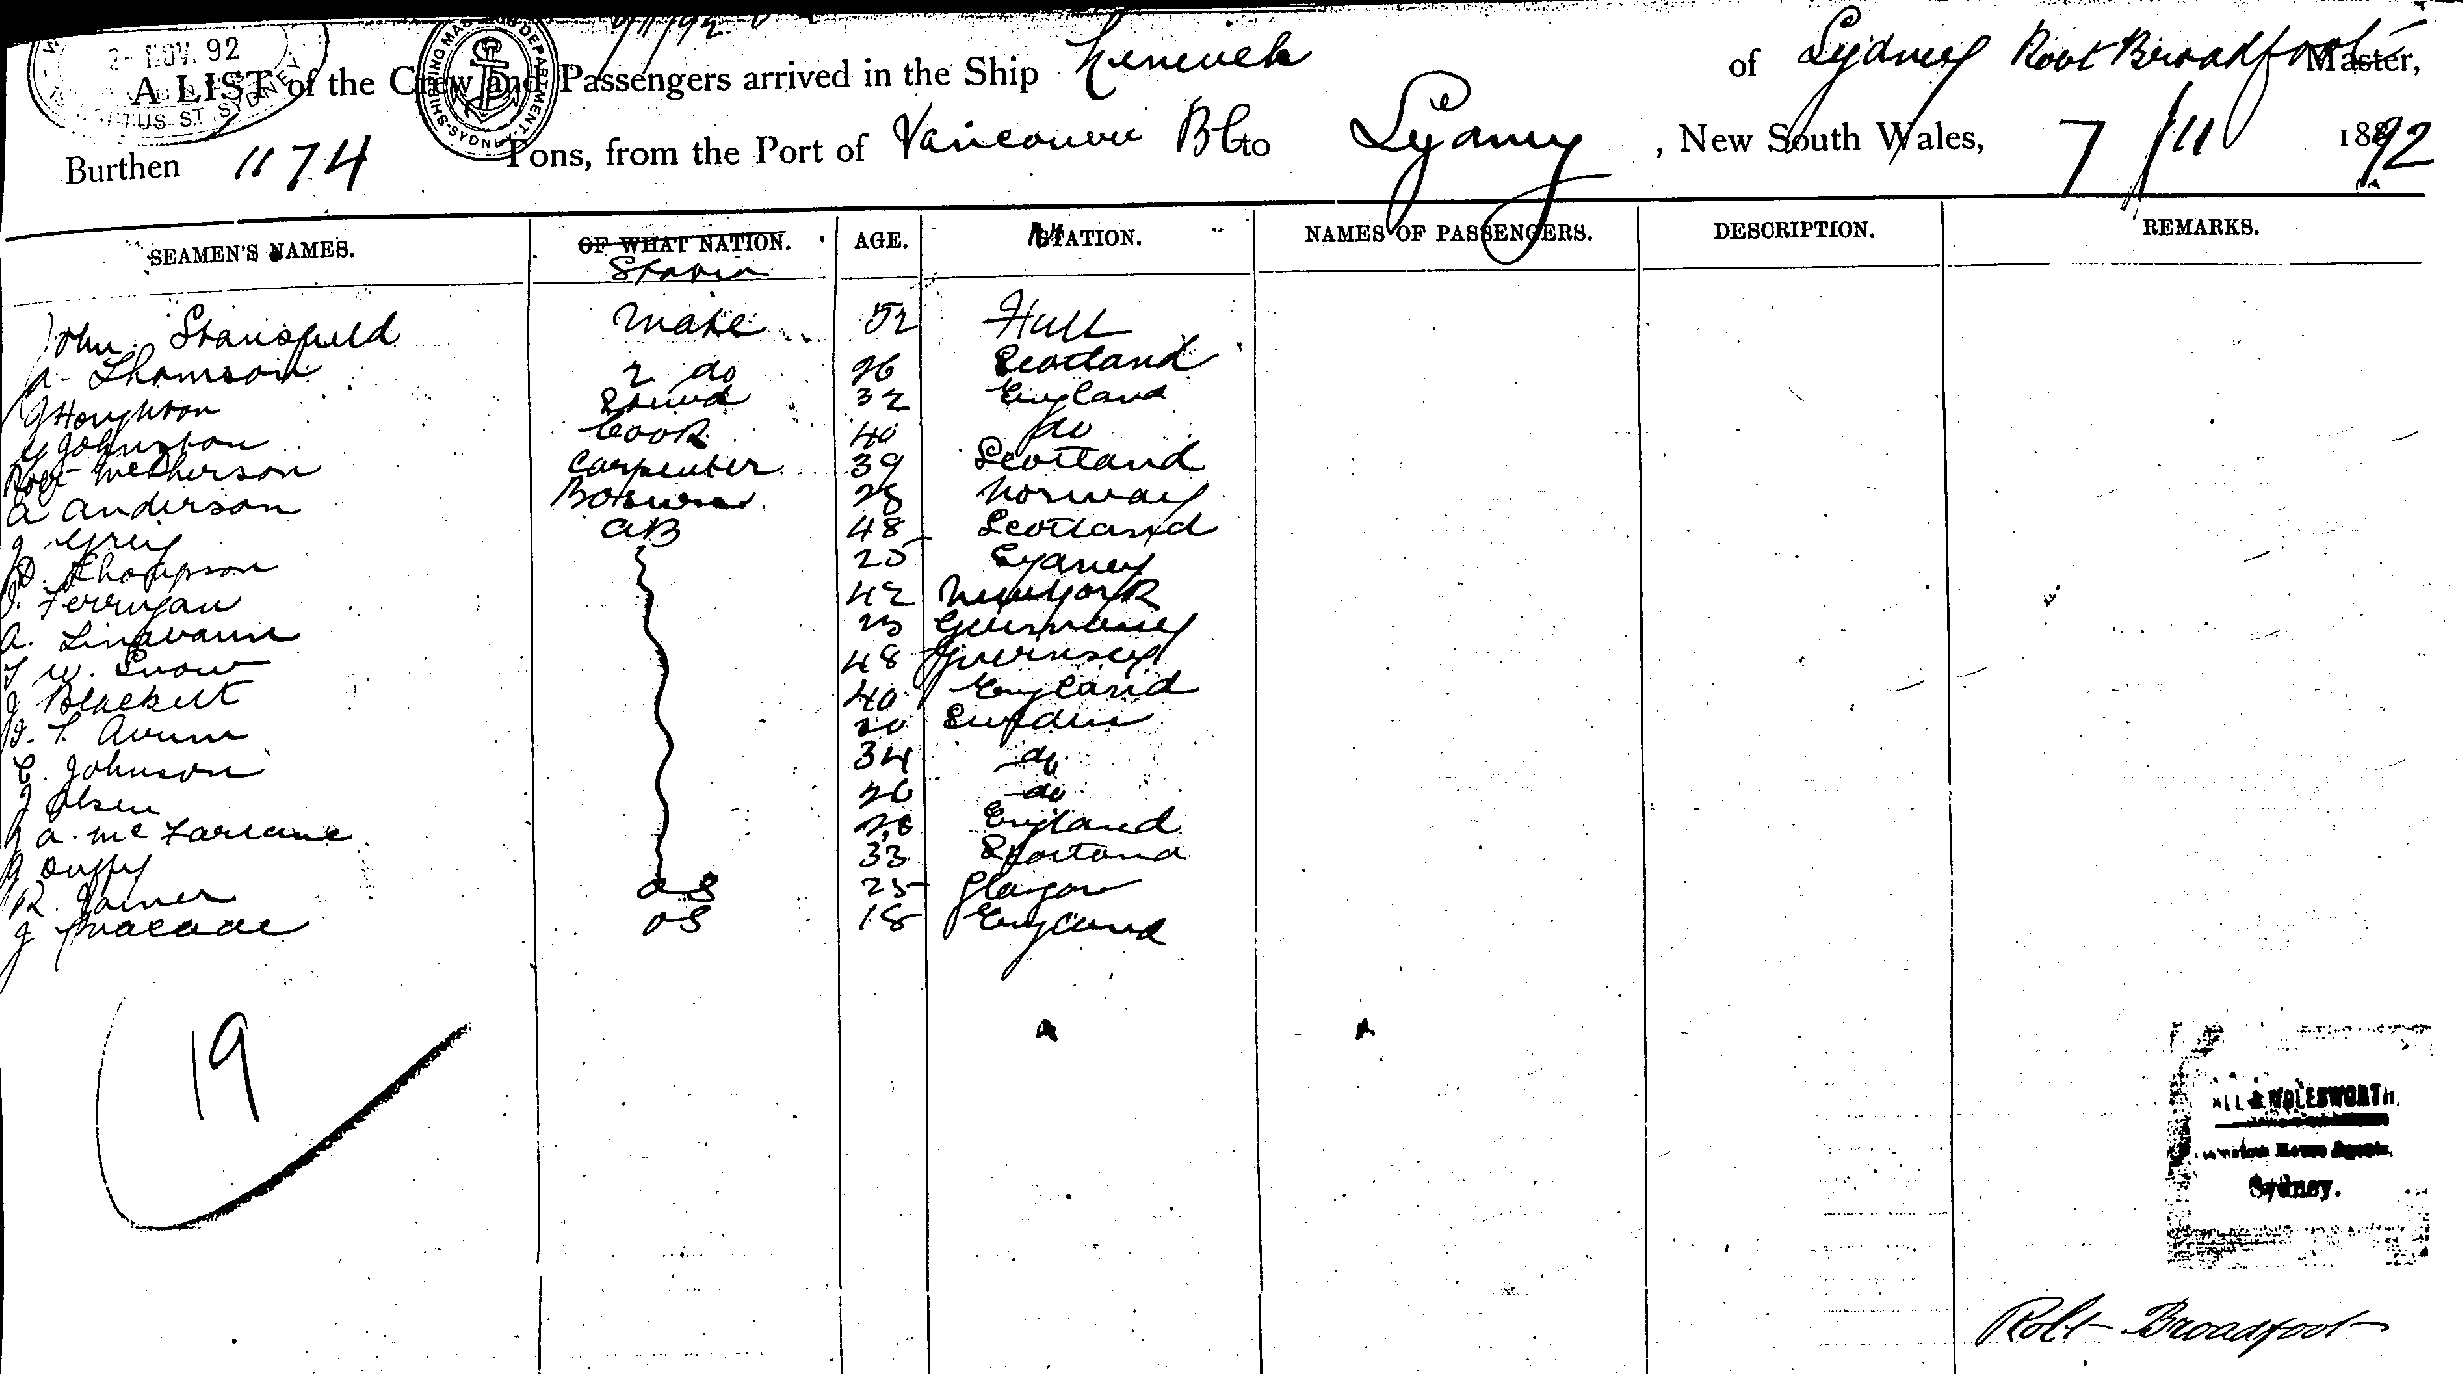 2- NOV. 92
A LIST of the Crew and Passengers arrived in the Ship of Sydney Robt Broadfoot Master,
Burthen 1174 Tons, from the Port of Vancouver BC to Sydney, New South Wales, 7/11 1892
SEAMEN'S NAMES. OF WHAT NATION. AGE. NATION. NAMES OF PASSENGERS. DESCRIPTION. REMARKS.
Station
John Stansfield Mate 52 Hull
A. Thomson 2 do 26 Scotland
J Houghton Steward 32 England
G Johnston Cook 40 do
Robt McPherson Carpenter 39 Scotland
A Anderson Boatswain 28 Norway
J Greig AB 48 Scotland
D. Thompson 25 Sydney
J. Ferrigan 42 New York
A. Lindmann 25 Germany
T W. Snow 48 Guernsey
J Blackett 40 England
20 Sweden
C. Johnson 34 do
J Olsen 26 do
J A. McFarlane 28 England
J Duffy 33 Scotland
R. Joiner OS 25 Glasgow
J OS 18 England
19
WOLESWORTH
House Agents,
Sydney.
Robt Broadfoot